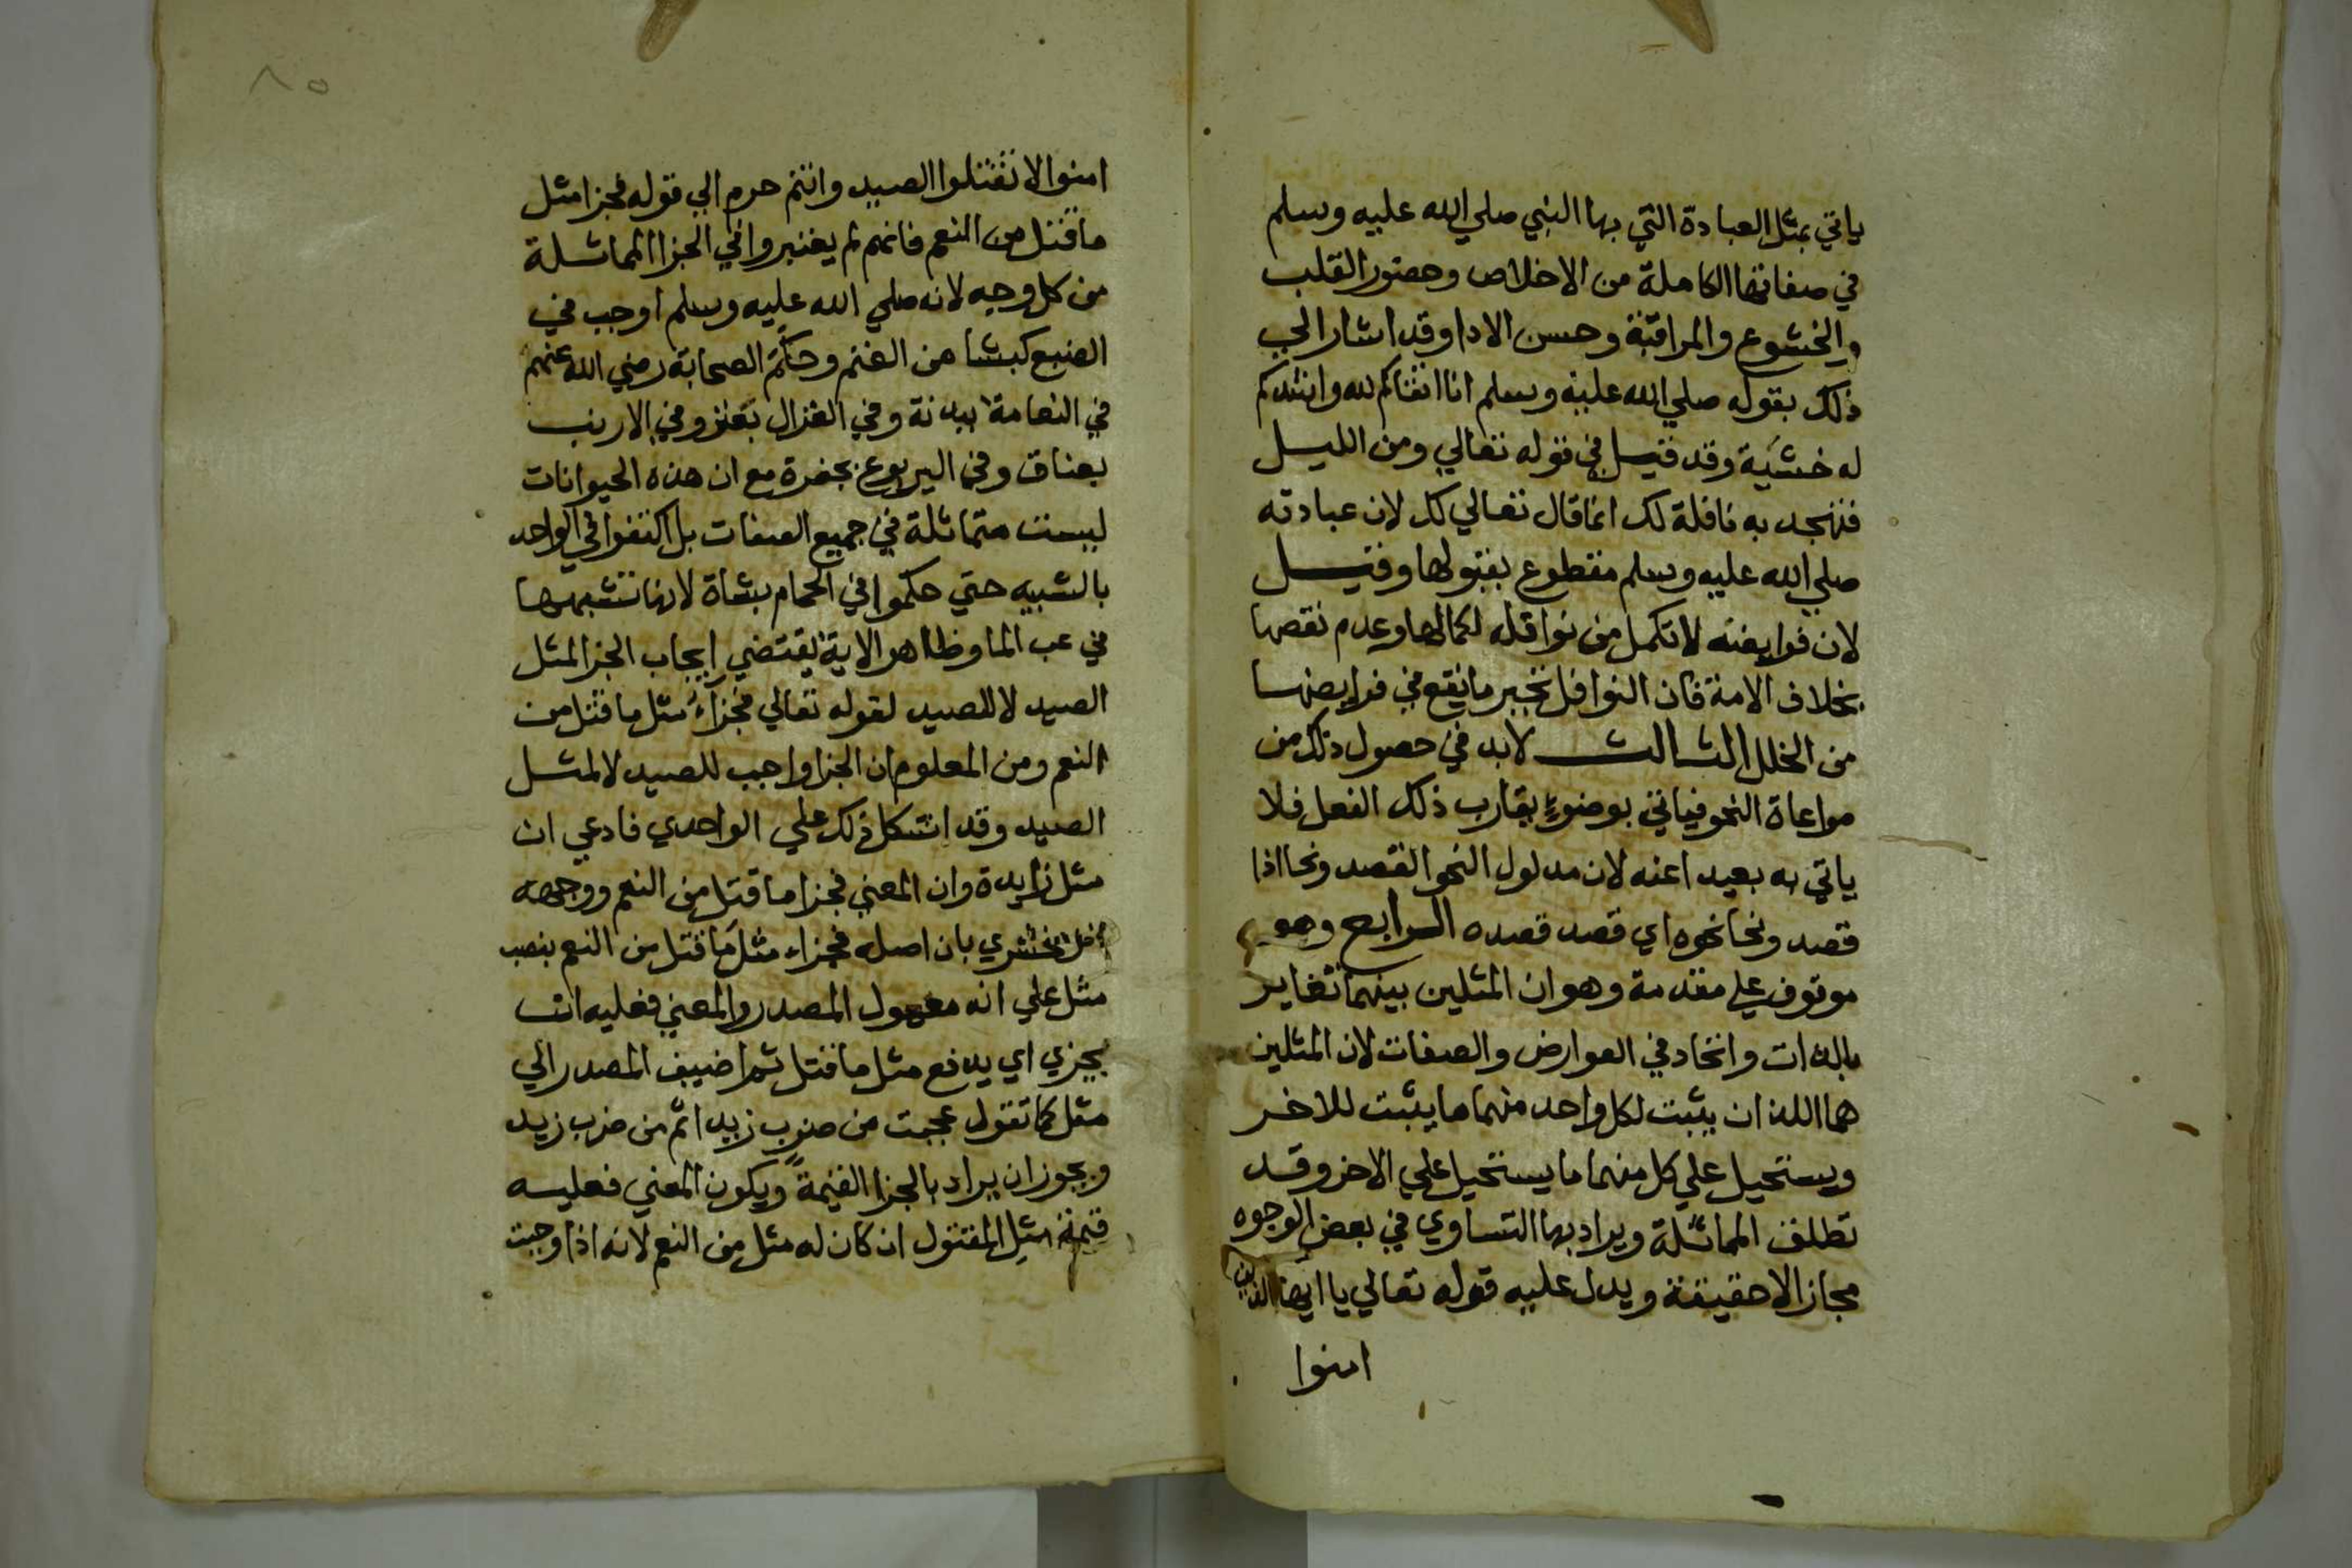 ياتي بمثل العبادة التي بها النبي صلي الله عليه وسلم
في صفاتها الكاملة من الاخلاص وحضور القلب
والخشوع والمراقبة وحسن الادا وقد اشار الي
ذلك بقوله صلي الله عليه وسلم انا اتقاكم لله واشدكم
له خشية وقد قيل في قوله تعالي ومن الليل
فتهجد به نافلة لك انما قال تعالي لك لان عبادته
صلي الله عليه وسلم مقطوع بقبولها وقيل
لان فرايضه لا تكمل من نوافله لكمالها وعدم نقصها
بخلاف الامة فان النوافل تجبر ما يقع في فرايضها
من الخلل الثالث لابد في حصول ذلك من
مراعاة النحو فياتي بوضوء يقارب ذلك الفعل فلا
ياتي به بعيدا عنه لان مدلول النحو القصد ونحا اذا
قصد ونحا نحوه اي قصد قصده الرابع وهو
موقوف علي مقدمة وهو ان المثلين بينهما تغاير
بالذات واتحاد في العوارض والصفات لان المثلين
هما اللذان يثبت لكل واحد منهما ما يثبت للاخر
ويستحيل علي كل منهما ما يستحيل علي الاخر وقد
تطلق المماثلة ويراد بها التساوي في بعض الوجوه
مجازا لا حقيقة ويدل عليه قوله تعالي يا ايها الذين
امنوا
٨٥
امنوا لا تقتلوا الصيد وانتم حرم الي قوله فجزا مثل
ما قتل من النعم فانهم لم يعتبروا في الجزا المماثلة
من كل وجه لانه صلي الله عليه وسلم اوجب في
الضبع كبشا من الغنم وحكم الصحابة رضي الله عنهم
في النعامة ببدنة وفي الغزال بعنز وفي الارنب
بعناق وفي اليربوع بجفرة مع ان هذه الحيوانات
ليست متماثلة في جميع الصفات بل اكتفوا في الواحد
بالشبيه حتي حكموا في الحمام بشاة لانها تشبهها
في عب الما وظاهر الاية يقتضي ايجاب الجزا لمثل
الصيد لا للصيد لقوله تعالي فجزاء مثل ما قتل من
النعم ومن المعلوم ان الجزا واجب للصيد لا لمثل
الصيد وقد اشكل ذلك علي الواحدي فادعي ان
مثل زايدة وان المعني فجزا ما قتل من النعم ووجهه
الزمخشري بان اصله فجزاء مثل ما قتل من النعم بنصب
مثل علي انه معمول المصدر والمعني فعليه ان
يجزي اي يدفع مثل ما قتل ثم اضيف المصدر الي
مثل كما تقول عجبت من ضرب زيدا ثم من ضرب زيد
ويجوز ان يراد بالجزا القيمة ويكون المعني فعليه
قيمة مثل المقتول ان كان له مثل من النعم لانه اذا وجبت